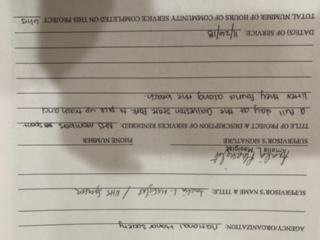 AGENCY/ORGANIZATION: National Honor Society
SUPERVISOR'S NAME & TITLE: / NHS Sponsor
SUPERVISOR'S SIGNATURE PHONE NUMBER
TITLE OF PROJECT & DESCRIPTION OF SERVICES RENDERED: NHS members spent
a full day at the Galveston State Park to pick up trash and
litter they found along the beach.
DATE(S) OF SERVICE: 11/24/18
TOTAL NUMBER OF HOURS OF COMMUNITY SERVICE COMPLETED ON THIS PROJECT